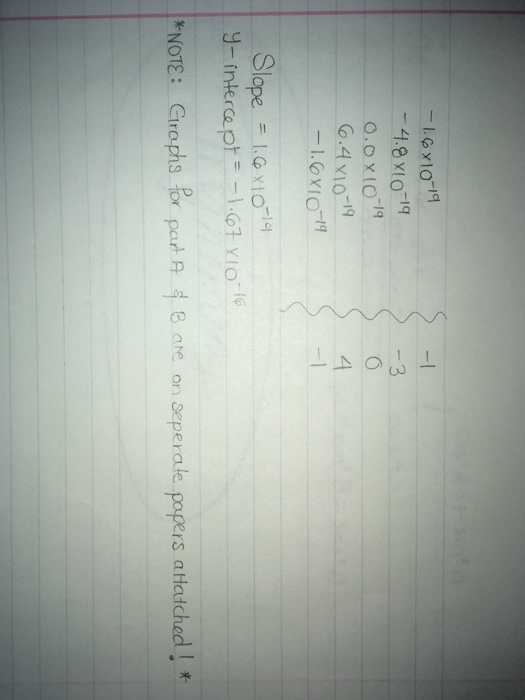 -1.6×10⁻¹⁹ -1
-4.8×10⁻¹⁹ -3
0.0×10⁻¹⁹ 0
6.4×10⁻¹⁹ 4
-1.6×10⁻¹⁹ -1
Slope = 1.6×10⁻¹⁹
y-intercept = -1.67×10⁻¹⁶
*NOTE: Graphs for part A & B are on seperate papers attatched! *